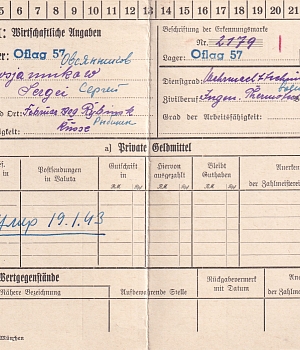 5 6 7 8 9 10 11 12 13 14 15 16 17 18 19 20 21
: Wirtschaftliche Angaben
er: Oflag 57 Овсянников
Sergei Сергей
Ort: Rybinsk
Рыбинск
igkeit: Russe
Beschriftung der Erkennungsmarke
Nr. 2179
Lager: Oflag 57
Dienstgrad:
Zivilberuf: Ingen.
Grad der Arbeitsfähigkeit:
a) Private Geldmittel
Postsendungen in Valuta
Gutschrift in
RM. Rpf.
Hiervon ausgezahlt
RM. Rpf.
Bleibt Guthaben
RM. Rpf.
Anerk
der Zahlmeisterei
умер 19.1.43
Wertgegenstände
Nähere Bezeichnung
Aufbewahrende Stelle
Rückgabevermerk mit Datum
Anerk
der Zahlmei
München